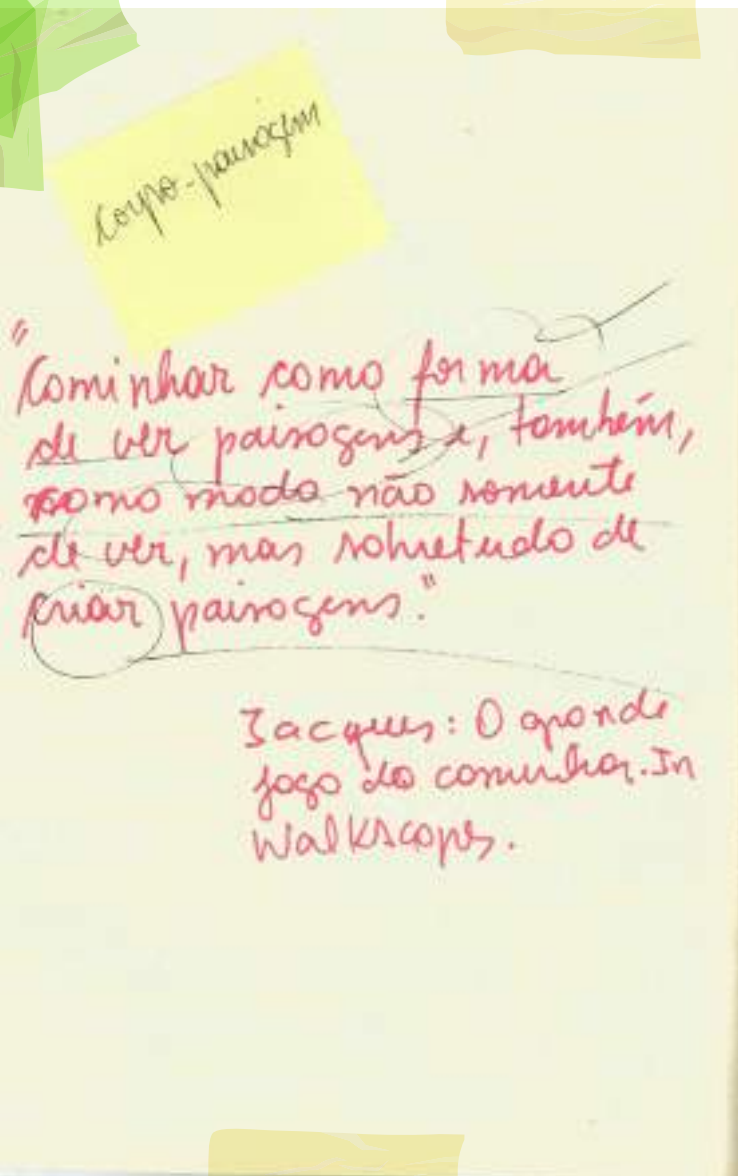 corpo-paisagem
"
Caminhar como forma
de ver paisagens e, também,
como modo não somente
de ver, mas sobretudo de
criar paisagens."
Jacques: O grande
jogo do caminhar. In
Walkscapes.